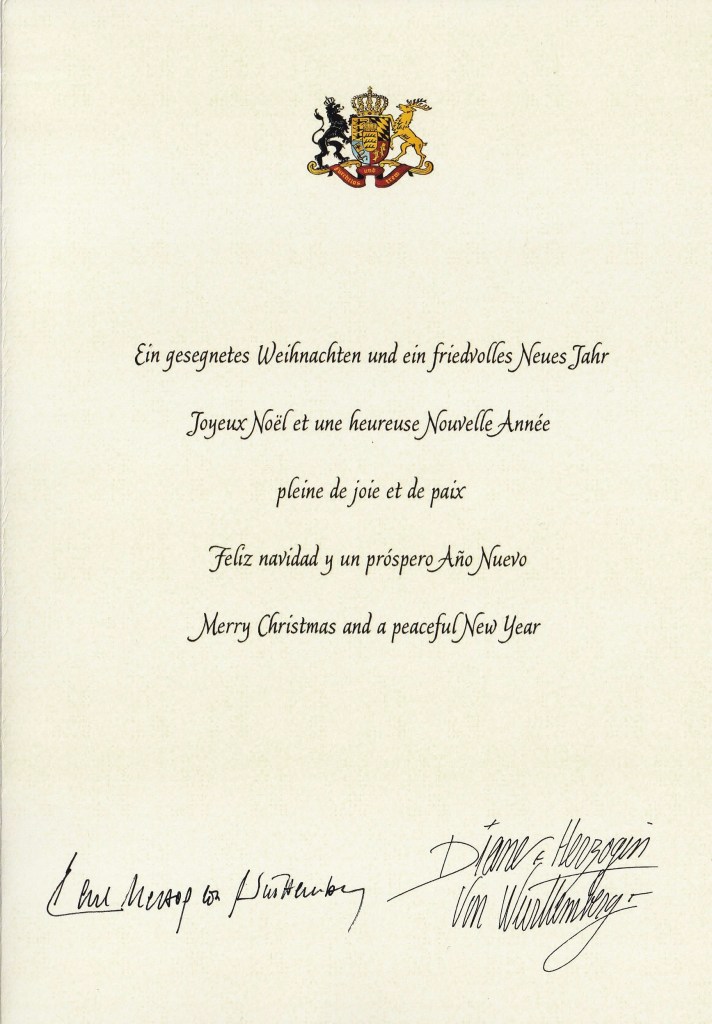 Furchtlos und trew
Ein gesegnetes Weihnachten und ein friedvolles Neues Jahr
Joyeux Noël et une heureuse Nouvelle Année
pleine de joie et de paix
Feliz navidad y un próspero Año Nuevo
Merry Christmas and a peaceful New Year
Carl Herzog von Württemberg
Diane Herzogin
von Württemberg